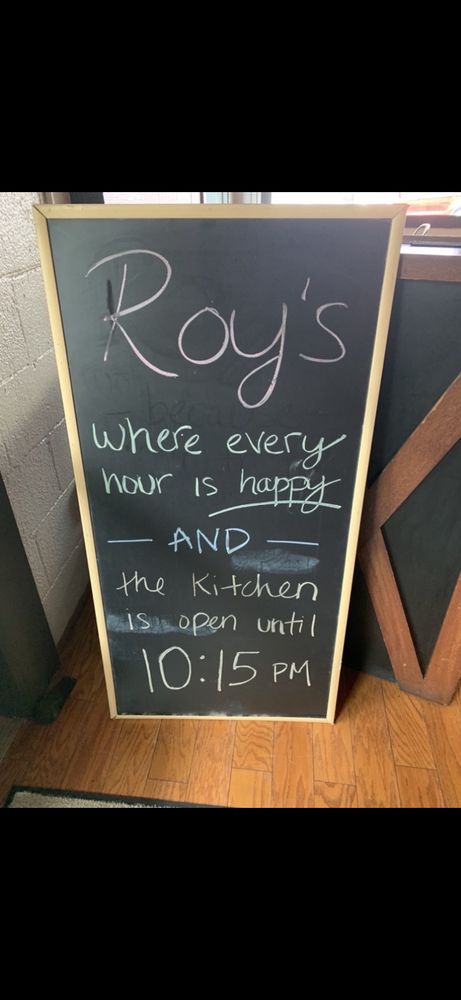 Roy's
where every
hour is happy
— AND —
the Kitchen
is open until
10:15 PM